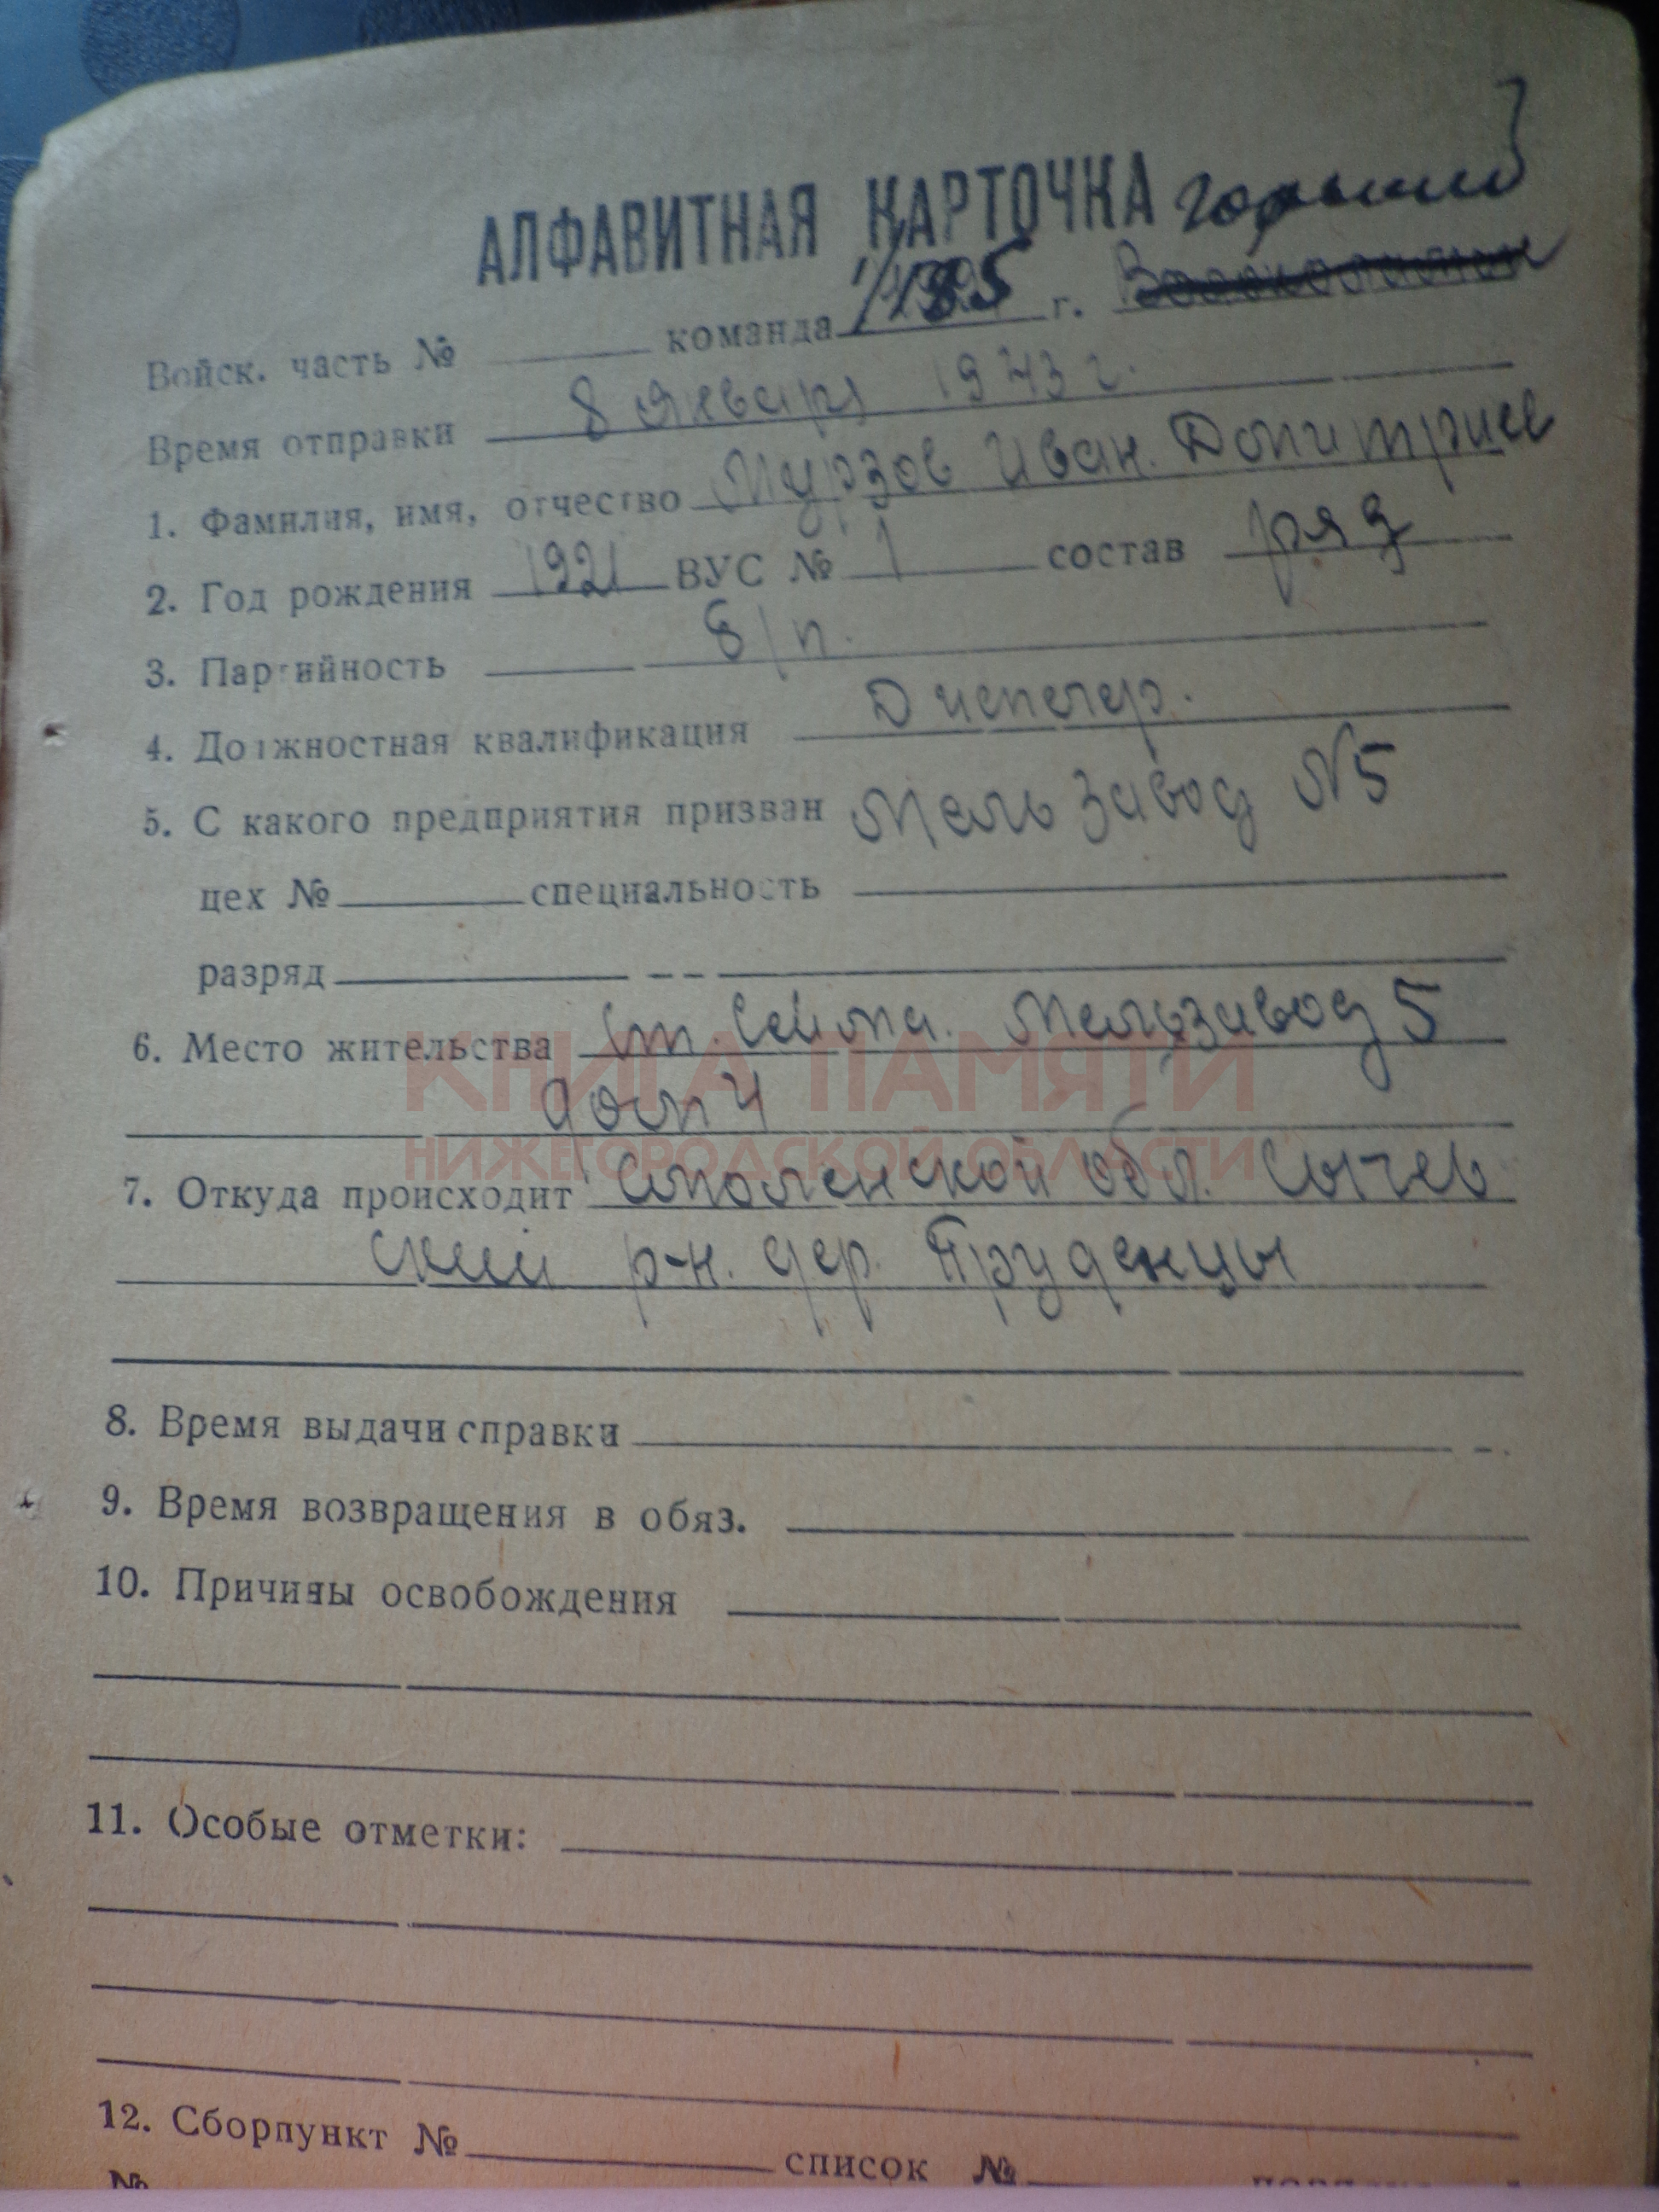 АЛФАВИТНАЯ КАРТОЧКА Горький
Войск. часть № команда 1/185 г.
Время отправки 8 января 1943 г.
1. Фамилия, имя, отчество Мурзов Иван. Дмитриев
2. Год рождения 1921 ВУС № 1 состав ряд
3. Партийность б/п.
4. Должностная квалификация Диспечер.
5. С какого предприятия призван Мельзавод №5
цех № специальность
разряд
6. Место жительства ст. Сейма. Мельзавод 5
дом 4
КНИГА ПАМЯТИ
НИЖЕГОРОДСКОЙ ОБЛАСТИ
7. Откуда происходит Смоленской обл. Сычев
ский р-н. дер. Пруденцы
8. Время выдачи справки
9. Время возвращения в обяз.
10. Причины освобождения
11. Особые отметки:
12. Сборпункт № список №
№